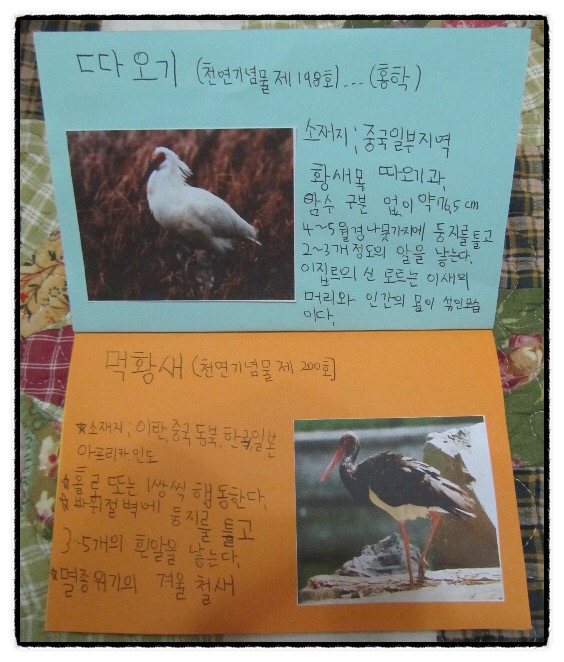 따오기 (천연기념물 제198회 ... (홍학)
소재지; 중국일부지역
황새목 따오기과,
암수 구분 없이 약76.5cm
4~5월경 나뭇가지에 둥지를틀고
2~3개정도의 알을 낳는다.
이집트의 신 토트는 이새의
머리와 인간의 몸이 섞인모습
이다.
먹황새 (천연기념물 제 200회]
☆소재지; 이란, 중국 동북, 한국, 일본
아프리카. 인도
☆홀로 또는 1쌍씩 행동한다.
☆바위절벽에 둥지를 틀고
3~5개의 흰알을 낳는다.
☆멸종위기의 겨울 철새